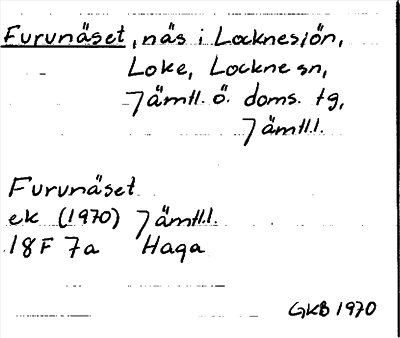 Furunäset, näs i Locknesjön,
Loke, Lockne sn,
Jämtl. ö. doms. tg,
Jämtl.l.
Furunäset
ek (1970) Jämtl.l.
18F 7a Haga
GKB 1970